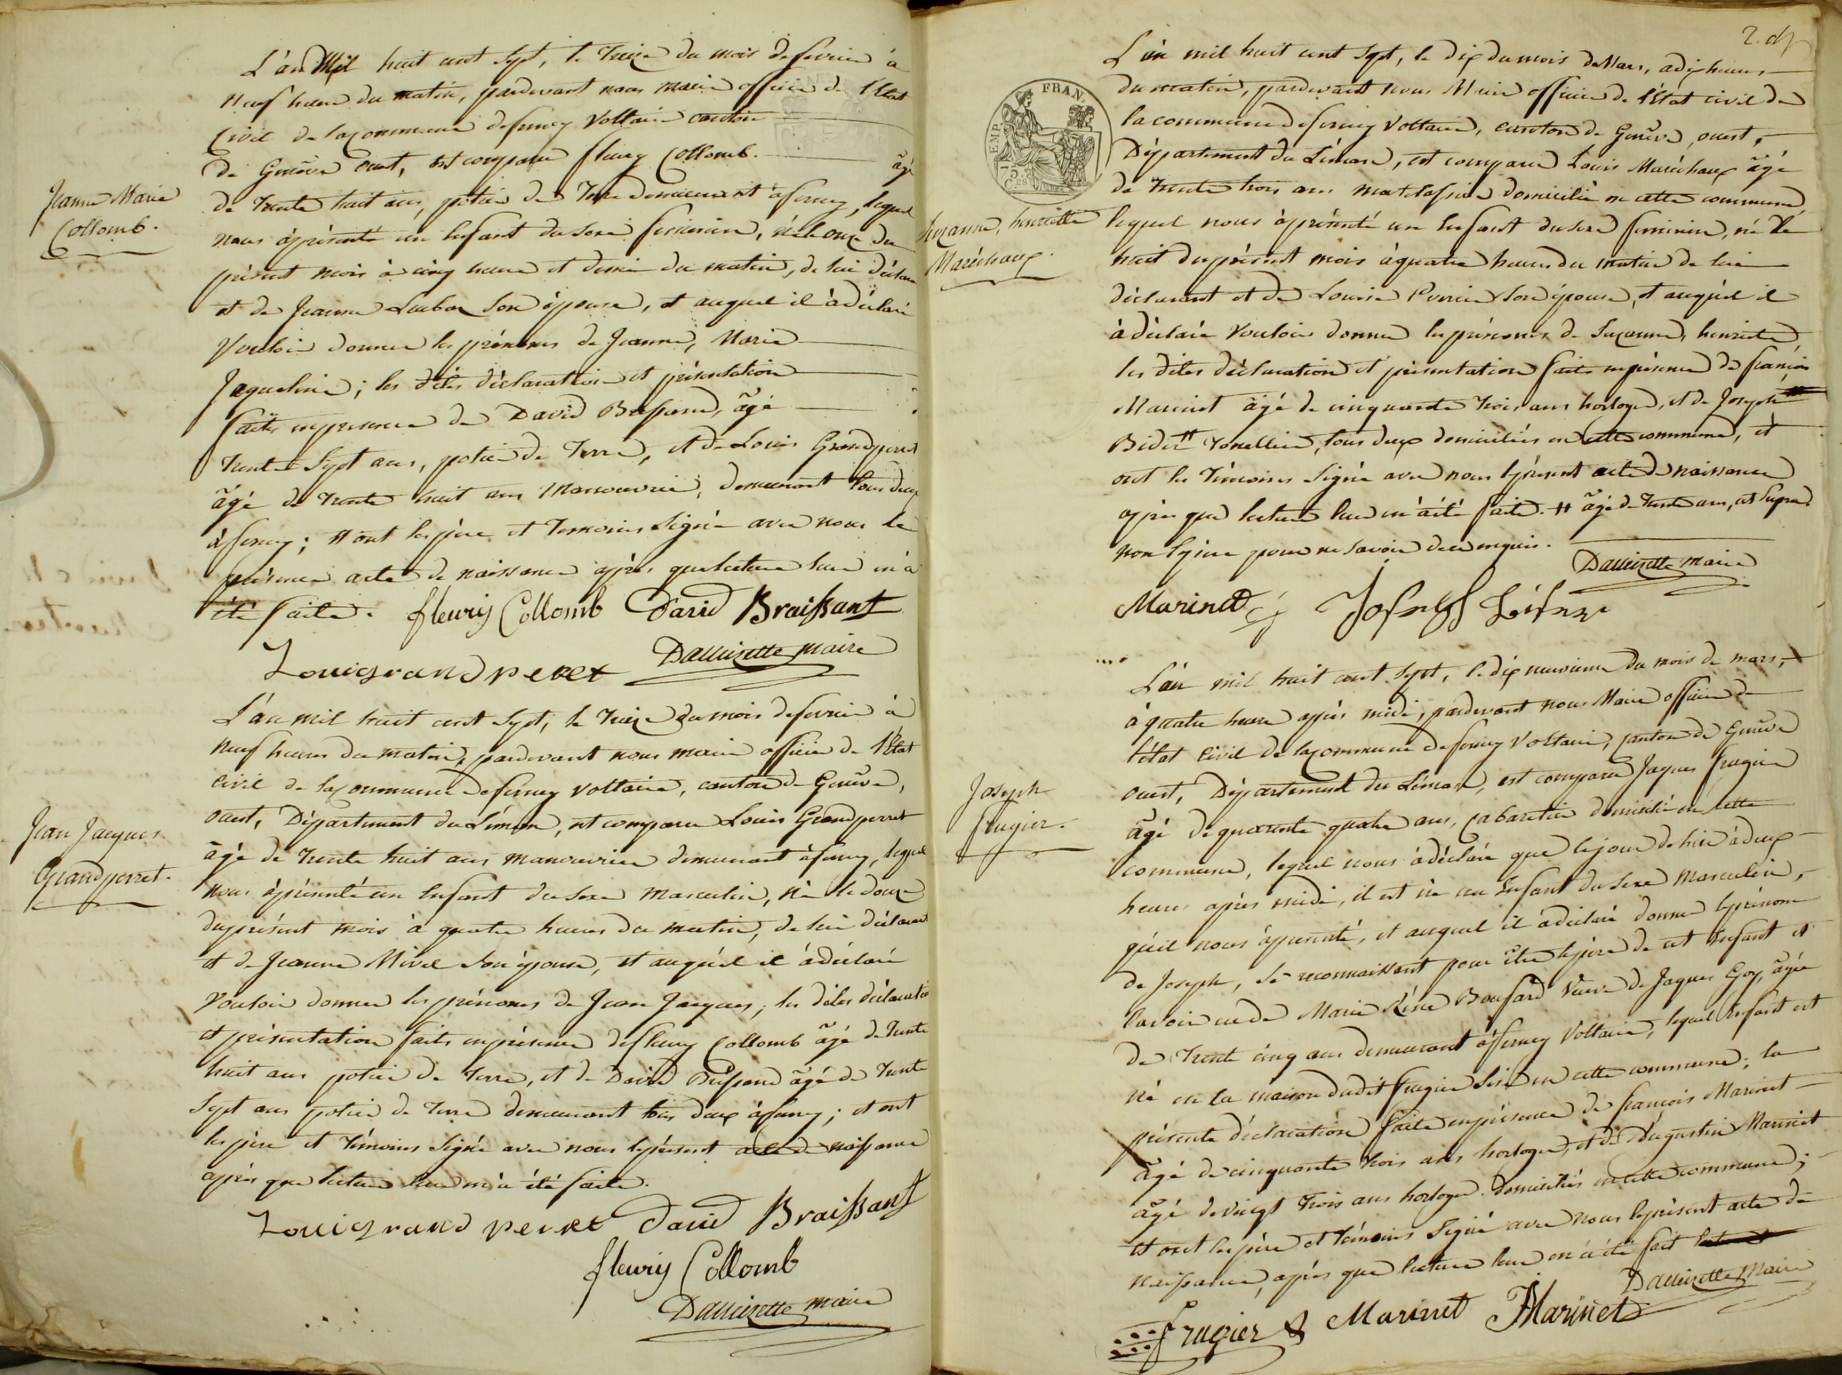 L'an Mil huit cent sept, le treize du mois de fevrier à
neuf heures du matin, pardevant nous maire officier de l'Etat
Civil de la commune de ferney Voltaire canton
de Genêve Ouest, est comparu fleury Collomb. âgé
de trente huit ans, potier de Terre demeurant à ferney, lequel
nous à présenté un Enfant du sexe feminin, né le onze du
présent mois à cinq heures et demie du matin, de lui déclarant
et de Jeanne son épouse, et auquel il à déclaré
Vouloir donner les prénoms de Jeanne, Marie
Jaqueline; les dites déclaration et présentation
faites en presence de David Bressand, âgé
trente sept ans, potier de Terre, et de Louis Grandperret
âgé de trente huit ans Manouvrier, demeurant tous deux
à ferney; et ont les père et temoins signé avec nous le
présent acte de naissance après que lecture leur en à
été faite. fleury Collomb David Braissant
Louis grand perret Dallizette maire
Jeanne Marie
Collomb.
L'an mil huit cent sept, le treize du mois de fevrier à
neuf heures du matin, pardevant nous maire officier de l'Etat
civil de la Commune de ferney Voltaire, canton de Genêve,
ouest, Département du Léman, est comparu Louis Grandperret
âgé de trente huit ans manouvrier demeurant à ferney, lequel
nous à présenté un Enfant du sexe masculin, né le douze
du présent mois à quatre heures du matin, de lui déclarant
et de Jeanne son épouse, et auquel il à déclaré
Vouloir donner les prénoms de Jean Jacques; les dites déclaration
et présentation faites en présence de fleury Collomb âgé de trente
huit ans potier de Terre, et de David Bressand âgé de trente
sept ans potier de Terre demeurant tous deux à ferney; et ont
les père et témoins signé avec nous le présent acte de naissance
après que lecture leur en à été faite.
Louis grand perret David Braissant
fleury Collomb
Dallizette maire
Jean Jacques
Grandperret.
L'an mil huit cent sept, le dix du mois de Mars, à dix heures
du matin, pardevant nous Maire officier de l'Etat civil de
la commune de ferney Voltaire, canton de Genêve, ouest,
Département du Léman, est comparu Louis Maréchaux âgé
de trente trois ans domicilié en cette commune
lequel nous à présenté un Enfant du sexe feminin, né le
huit du présent mois à quatre heures du matin de lui
déclarant et de Louise son épouse, et auquel il
à déclaré Vouloir donner les prénoms de Suzanne, henriette
les dites déclaration et présentation faites en présence de françois
Marinet âgé de cinquante trois ans horloger, et de Joseph
tonellier, tous deux domiciliés en cette commune, et
ont les témoins signé avec nous le présent acte de naissance
après que lecture leur en à été faite. # âgé de trente ans,
non le père pour ne savoir de ce enquis.
Dallizette maire
Marinet Joseph
Suzanne, henriette
Maréchaux.
FRAN.
EMP.
75 C.
L'an mil huit cent sept, le dix neuvième du mois de mars,
à quatre heures après midi, pardevant nous Maire officier de
l'état civil de la commune de ferney Voltaire, canton de Genêve
ouest, Département du Léman, est comparu Jaques frugier
âgé de quarante quatre ans, Cabaretier domicilié en cette
commune, lequel nous à déclaré que le jour de hier à deux
heures après midi, il est né un Enfant du sexe masculin,
qu'il nous à présenté, et auquel il à déclaré donner le prénom
de Joseph, se reconnaissant pour être le père de cet Enfant et
l'avoir eu de Marie Veuve de Jaques Goy, âgée
de trente cinq ans demeurant à ferney Voltaire, lequel Enfant est
né en la maison dudit frugier sise en cette commune; la
présente déclaration faite en présence de françois Marinet
âgé de cinquante trois ans horloger, et de Augustin Marinet
âgé de vingt trois ans horloger domiciliés en cette commune;
et ont les père et témoins signé avec nous le présent acte de
naissance, après que lecture leur en à été fait
Dallizette maire
frugier Marinet Marinet
Joseph
frugier.